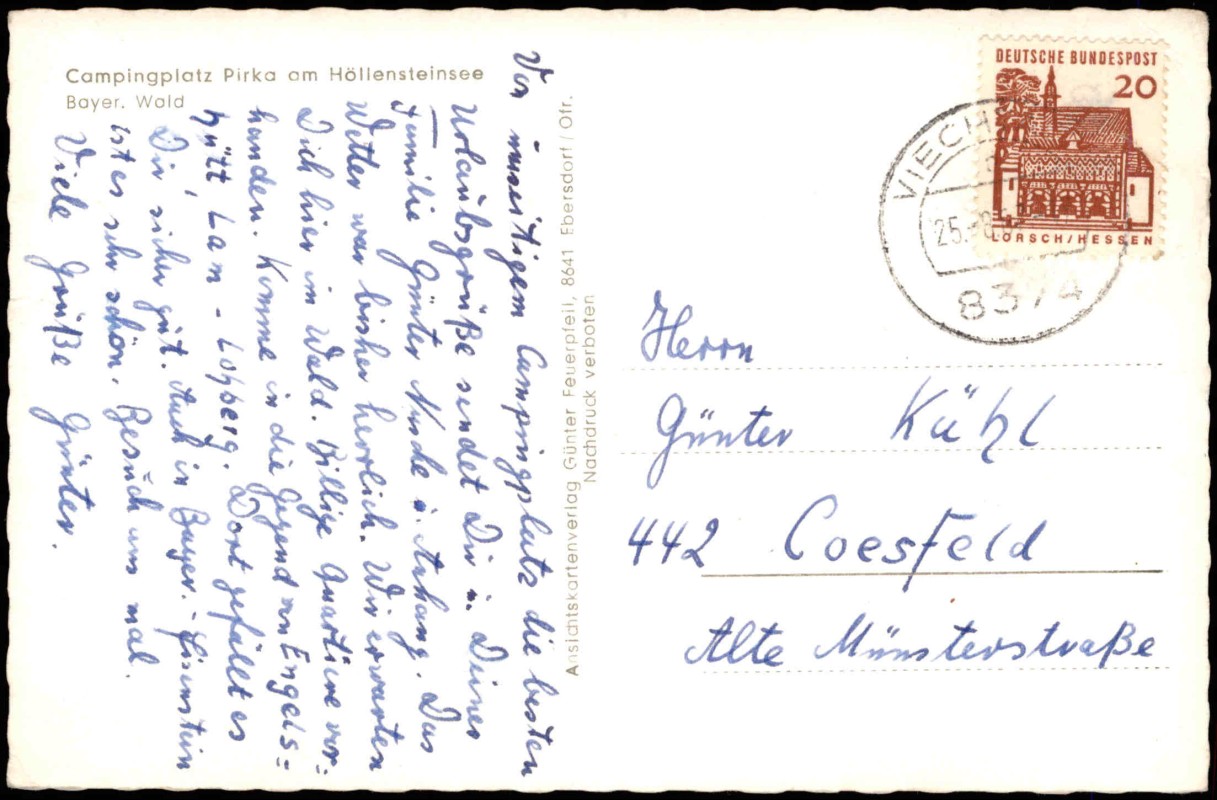 Campingplatz Pirka am Höllensteinsee
Bayer. Wald
Von unseitigem Campingplatz die besten
Urlaubsgrüße sendet Dir u. Deiner
Familie Günter u. Anhang. Das
Wetter war bisher herrlich. Wir erwarten
Dich hier im Wald. Billige Quartiere vor=
handen. Komme in die Gegend von Engels=
hütt Lam - Lohberg. Dort gefällt es
Dir sicher gut. Auch in Bayer.-Eisenstein
ist es sehr schön. Besuch uns mal.
Viele Grüße Günter.
Ansichtskartenverlag Günter Feuerpfeil, 8641 Ebersdorf / Ofr.
Nachdruck verboten
DEUTSCHE BUNDESPOST
20
LORSCH/HESSEN
VIECH
25.
8374
Herrn
Günter Kühl
442 Coesfeld
Alte Münsterstraße